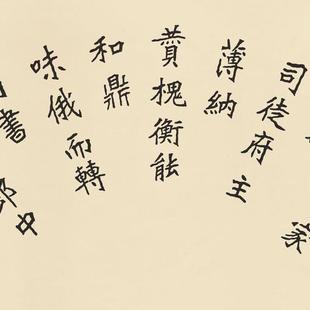 司徒府主
薄納
賛槐衡能
和鼎
味俄而轉
書郎中